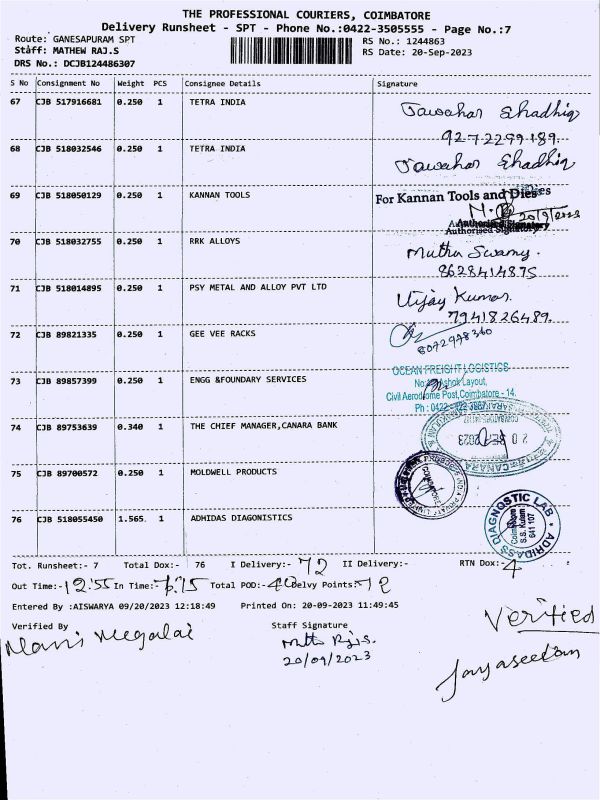 THE PROFESSIONAL COURIERS, COIMBATORE
Delivery Runsheet - SPT - Phone No.:0422-3505555 - Page No.:7
Route: GANESAPURAM SPT RS No.: 1244863
Staff: MATHEW RAJ.S RS Date: 20-Sep-2023
DRS No.: DCJB124486307
S No Consignment No Weight PCS Consignee Details Signature
67 CJB 517916681 0.250 1 TETRA INDIA Jawahar Shadhiq
9272299189
68 CJB 518032546 0.250 1 TETRA INDIA Jawahar Shadhiq
69 CJB 518050129 0.250 1 KANNAN TOOLS For Kannan Tools and Dies
20/9/2023
Authorised Signatory
70 CJB 518032755 0.250 1 RRK ALLOYS Muthu Swamy.
8628414875
71 CJB 518014895 0.250 1 PSY METAL AND ALLOY PVT LTD Vijay Kumar.
7941826489.
72 CJB 89821335 0.250 1 GEE VEE RACKS
8072978360
73 CJB 89857399 0.250 1 ENGG &FOUNDARY SERVICES OCEAN FREIGHT LOGISTICS
Ashok Layout,
Civil Aerodrome Post, Coimbatore - 14.
Ph : 0422
74 CJB 89753639 0.340 1 THE CHIEF MANAGER,CANARA BANK 20 SEP 2023
CANARA
75 CJB 89700572 0.250 1 MOLDWELL PRODUCTS
76 CJB 518055450 1.565. 1 ADHIDAS DIAGONISTICS ADHIDASS DIAGNOSTIC LAB
Coimbatore
S.S. Kulam
641 107
Tot. Runsheet:- 7 Total Dox:- 76 I Delivery:- 72 II Delivery:- RTN Dox:- 4
Out Time:- 12:55 In Time:- Total POD:- Delvy Points:-
Entered By :AISWARYA 09/20/2023 12:18:49 Printed On: 20-09-2023 11:49:45
Verified By Staff Signature Verified
Mani Megalai
20/09/2023
Jayaseelan